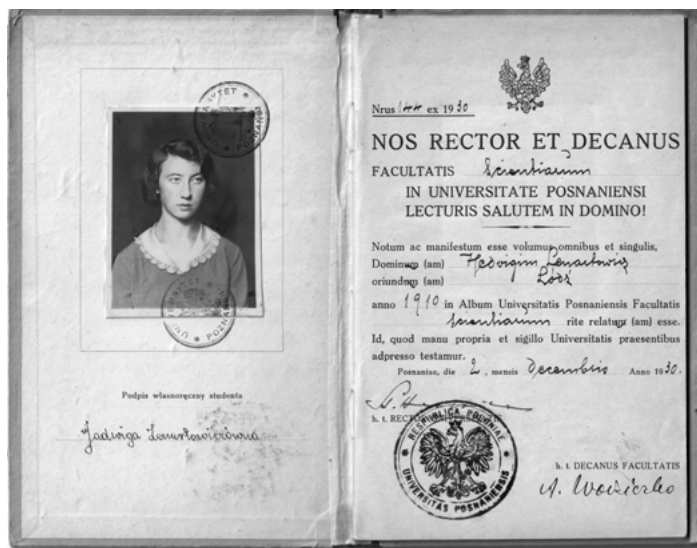 UNIWERSYTET POZNAŃSKI
Podpis własnoręczny studenta
Jadwiga
UNIWERSYTET POZNAŃSKI
Nrus 144 ex 1930
NOS RECTOR ET DECANUS
FACULTATIS Scientiarum
IN UNIVERSITATE POSNANIENSI
LECTURIS SALUTEM IN DOMINO!
Notum ac manifestum esse volumus omnibus et singulis,
Dominum (am) Hedvigim Lenartowicz
oriundum (am) Łódź
anno 1910 in Album Universitatis Posnaniensis Facultatis
scientiarum rite relatum (am) esse.
Id, quod manu propria et sigillo Universitatis praesentibus
adpresso testamur.
Posnaniae, die 2, mensis Decembris Anno 1930.
h. t. RECTOR
RESPUBLICA POLONIAE
UNIVERSITAS POSNANIENSIS
h. t. DECANUS FACULTATIS